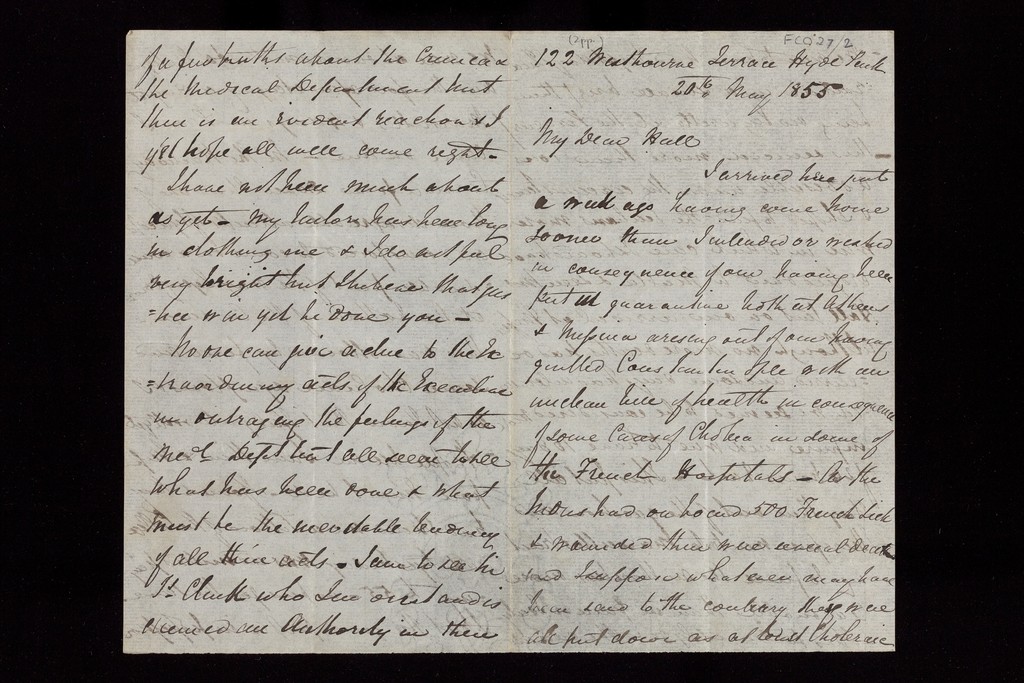 of a few truths about the Crimea &
the Medical Department but
there is an evident reaction & I
yet hope all will come right -
I have not been much about
as yet - my tailor has been long
in clothing me & I do not feel
very bright but I believe that jus
=tice will yet be done you -
No one can give a clue to the Ex
=traordinary acts of the Executive
in outraging the feelings of the
Med Dept but all seem to see
what has been done & what
must be the inevitable tendency
of all their acts - I am to see Sir
Js Clark who I understand is
an Authority in their
(2pp.)
FCO'27/2
122 Westbourne Terrace Hyde Park
20th May 1855
My Dear Hall
I arrived here just
a week ago having come home
sooner than I intended or wished
in consequence of our having been
put in quarantine both at Athens
& Messina arising out of our having
quitted Constantinople with an
unclean bill of health in consequence
of some Cases of Cholera in some of
the French Hospitals - As the
Indus had on board 500 French Sick
& wounded there were several deaths
and I suppose whatever may have
been said to the contrary they were
all put down as at least Choleraic